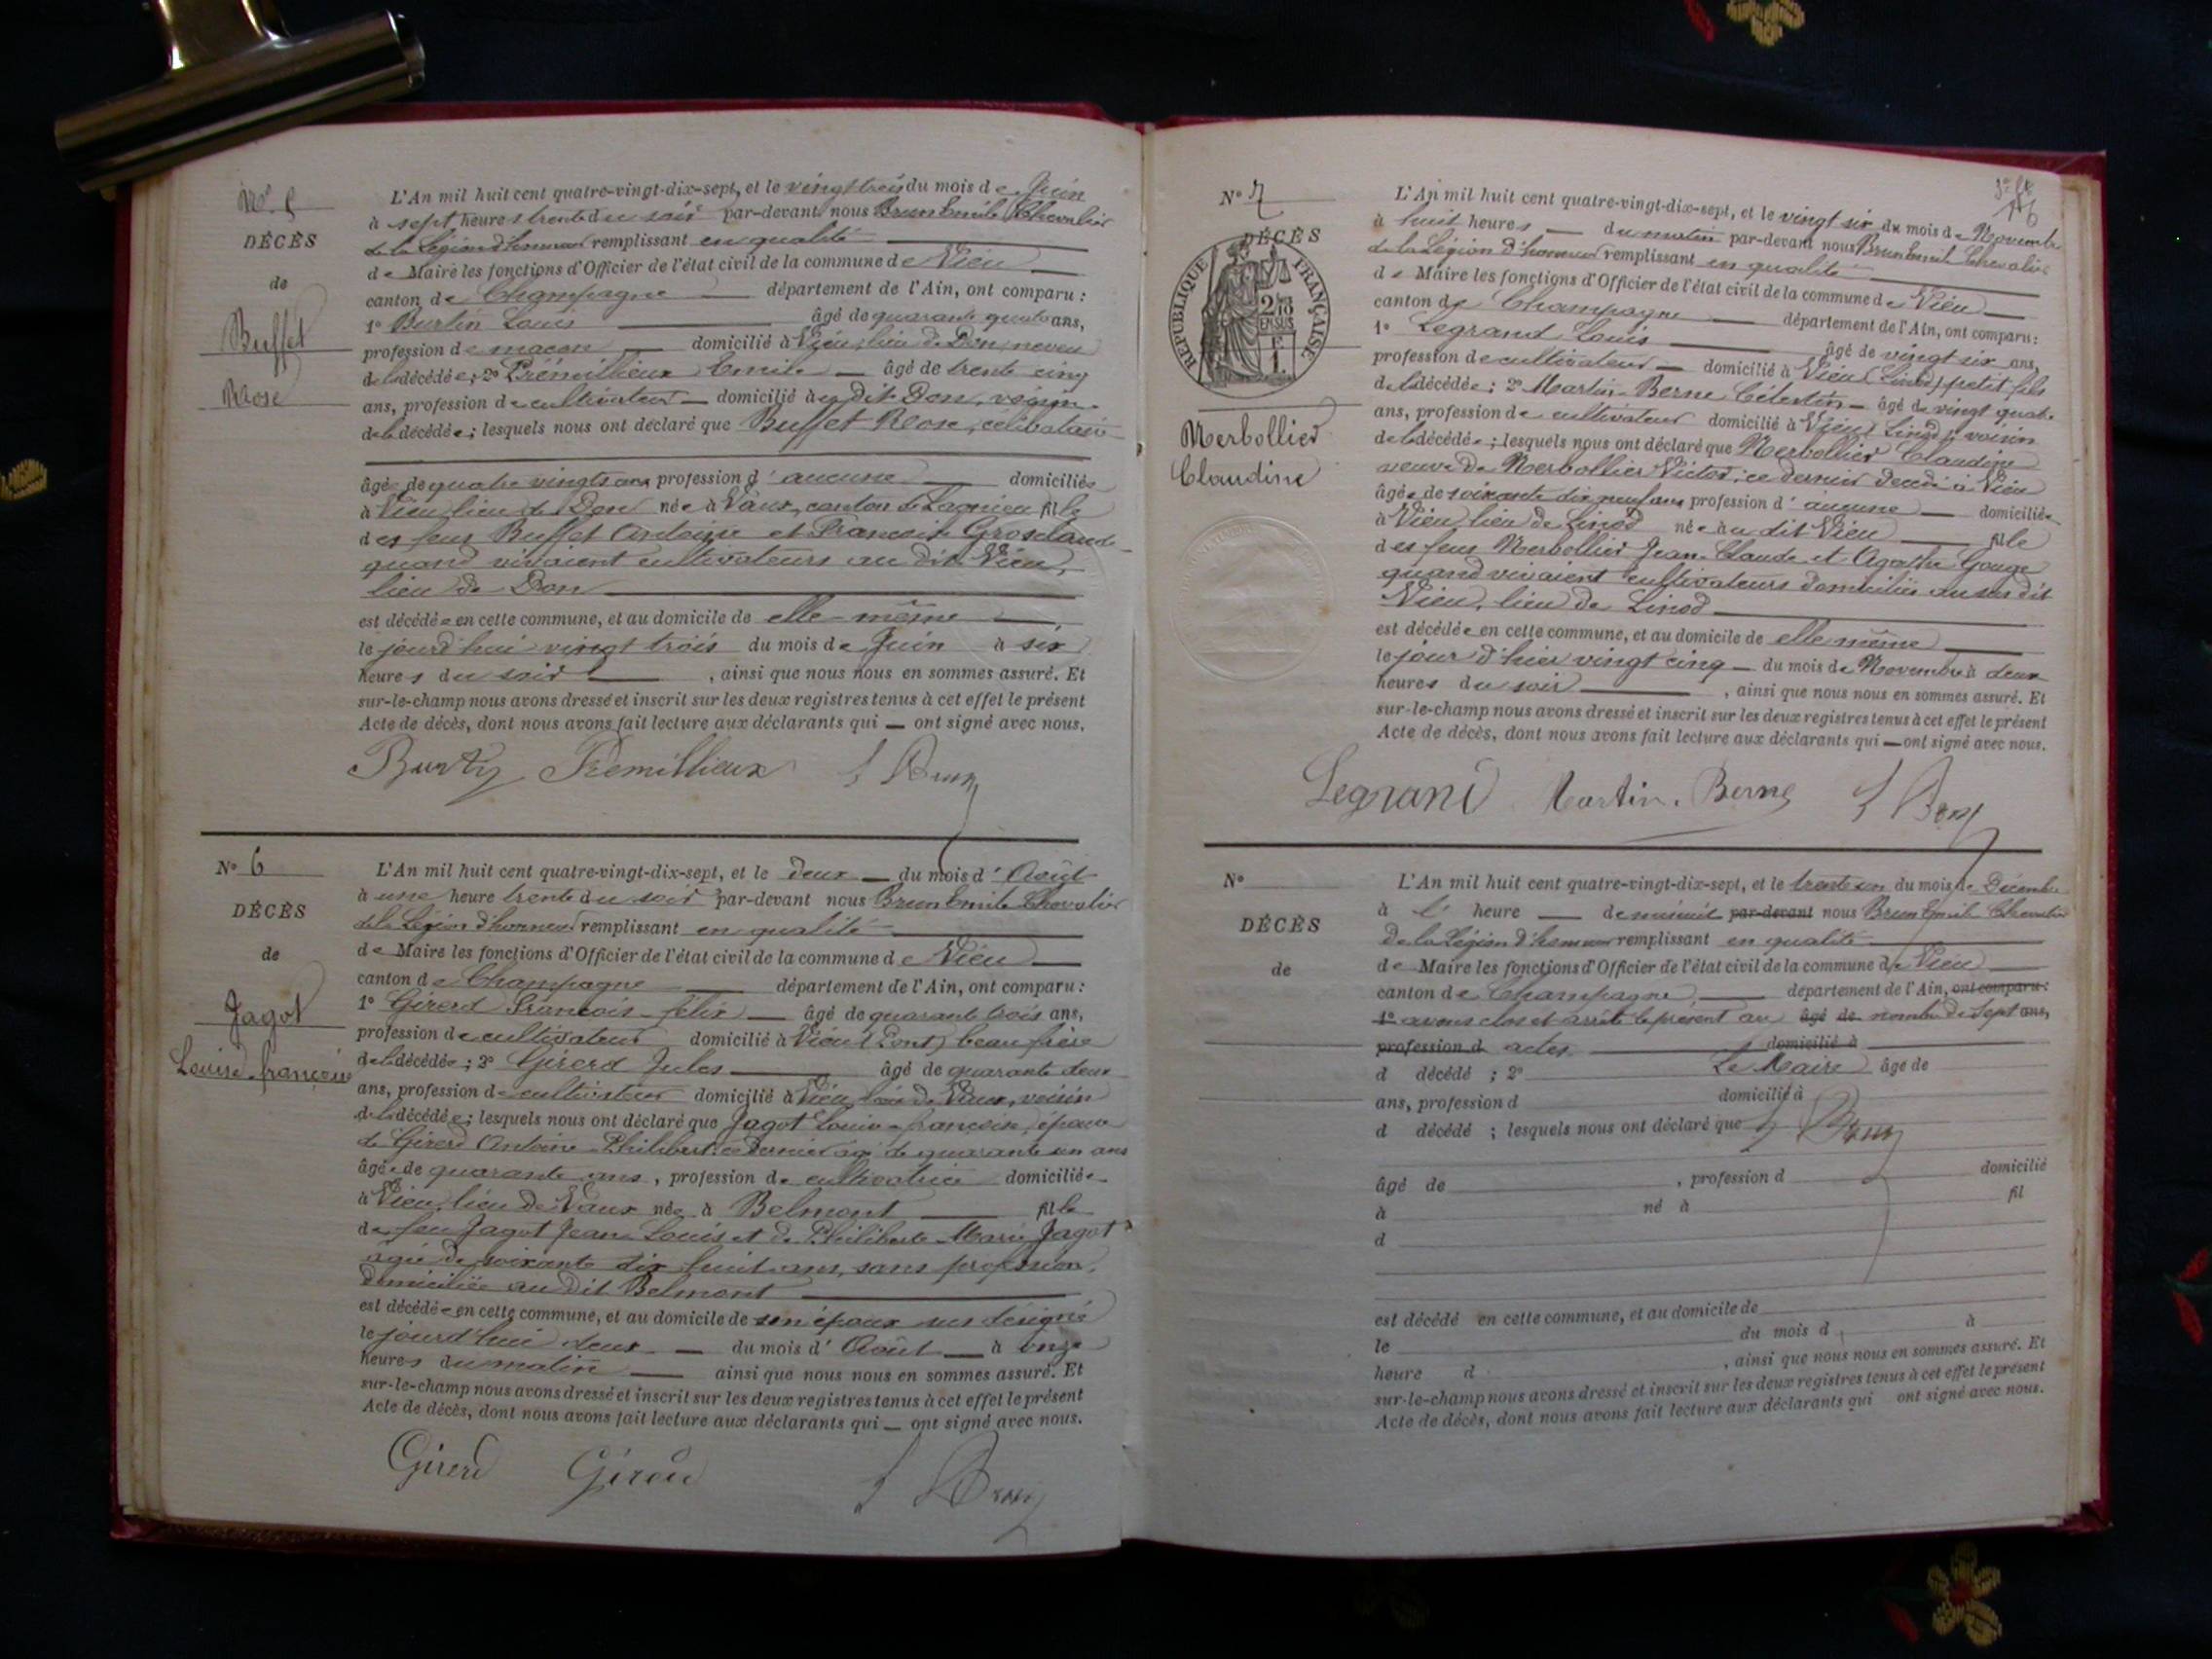 N° 5
DÉCÈS
de
Buffet
Rose
L'An mil huit cent quatre-vingt-dix-sept, et le vingt trois du mois de Juin
à sept heures trente du soir par-devant nous Brun Emile Chevalier
de la Légion d'honneur remplissant en qualité
de Maire les fonctions d'Officier de l'état civil de la commune de Vieu
canton de Champagne département de l'Ain, ont comparu :
1° Burtin Louis âgé de quarante quatre ans,
profession de maçon domicilié à Vieu, lieu de Don, neveu
de la décédée ; 2° Prémillieux Emile âgé de trente cinq
ans, profession de cultivateur domicilié à au dit Don, voisin
de la décédée ; lesquels nous ont déclaré que Buffet Rose, célibataire
âgée de quatre vingts ans profession d'aucune domiciliée
à Vieu lieu de Don née à Vaux, canton de Lagnieu fille
des feus Buffet Antoine et Françoise Groscande
quand vivaient cultivateurs au dit Vieu,
lieu de Don
est décédée en cette commune, et au domicile de elle-même
le jourd'hui vingt trois du mois de Juin à six
heures du soir , ainsi que nous nous en sommes assuré. Et
sur-le-champ nous avons dressé et inscrit sur les deux registres tenus à cet effet le présent
Acte de décès, dont nous avons fait lecture aux déclarants qui — ont signé avec nous.
Burtin Premillieux E Brun
N° 6
DÉCÈS
de
Jagot
Louise-françoise
L'An mil huit cent quatre-vingt-dix-sept, et le deux du mois d'Août
à une heure trente du soir par-devant nous Brun Emile Chevalier
de la Légion d'honneur remplissant en qualité
de Maire les fonctions d'Officier de l'état civil de la commune de Vieu
canton de Champagne département de l'Ain, ont comparu :
1° Girerd François-félix âgé de quarante trois ans,
profession de cultivateur domicilié à Vieu (Pont) beau frère
de la décédée ; 2° Girerd Jules âgé de quarante deux
ans, profession de cultivateur domicilié à Vieu lieu de Vaux, voisin
de la décédée ; lesquels nous ont déclaré que Jagot Louise-françoise, épouse
de Girerd Antoine-Philibert ce dernier âgé de quarante un ans
âgée de quarante ans, profession de cultivatrice domiciliée
à Vieu, lieu de Vaux née à Belmont fille
de feu Jagot Jean Louis et de Philiberte-Marie Jagot
âgée de soixante dix huit ans, sans profession,
domiciliée au dit Belmont
est décédée en cette commune, et au domicile de son époux sus désigné
le jourd'hui deux du mois d'Août à onze
heures du matin ainsi que nous nous en sommes assuré. Et
sur-le-champ nous avons dressé et inscrit sur les deux registres tenus à cet effet le présent
Acte de décès, dont nous avons fait lecture aux déclarants qui — ont signé avec nous.
Girerd Girerd E Brun
N° 7
DÉCÈS
RÉPUBLIQUE FRANÇAISE
2/10
EN SUS
1F
Merbollier
Claudine
L'An mil huit cent quatre-vingt-dix-sept, et le vingt six du mois de Novembre
à huit heures du matin par-devant nous Brun Emile Chevalier
de la Légion d'honneur remplissant en qualité
de Maire les fonctions d'Officier de l'état civil de la commune de Vieu
canton de Champagne département de l'Ain, ont comparu :
1° Legrand Louis âgé de vingt six ans,
profession de cultivateur domicilié à Vieu (Linod) petit fils
de la décédée ; 2° Martin-Berne Célestin âgé de vingt quatre
ans, profession de cultivateur domicilié à Vieu (Linod), voisin
de la décédée ; lesquels nous ont déclaré que Merbollier Claudine
veuve de Merbollier Victor, ce dernier décédé à Vieu
âgée de soixante dix neuf ans profession d'aucune domiciliée
à Vieu, lieu de Linod née au dit Vieu fille
des feus Merbollier Jean-Claude et Agathe Gouge
quand vivaient cultivateurs domiciliés au sus dit
Vieu, lieu de Linod
est décédée en cette commune, et au domicile de elle même
le jour d'hier vingt cinq du mois de Novembre à deux
heures du soir , ainsi que nous nous en sommes assuré. Et
sur-le-champ nous avons dressé et inscrit sur les deux registres tenus à cet effet le présent
Acte de décès, dont nous avons fait lecture aux déclarants qui — ont signé avec nous.
Legrand Martin-Berne E Brun
N°
DÉCÈS
de
L'An mil huit cent quatre-vingt-dix-sept, et le trente un du mois de Décembre
à l' heure de minuit par-devant nous Brun Emile Chevalier
de la Légion d'honneur remplissant en qualité
de Maire les fonctions d'Officier de l'état civil de la commune de Vieu
canton de Champagne, département de l'Ain, ont comparu :
1° avons clos et arrêté le présent au âgé de nombre de sept ans,
profession d actes domicilié à
d décédé ; 2° Le Maire âgé de
ans, profession d domicilié à
d décédé ; lesquels nous ont déclaré que E Brun
âgé de , profession d domicilié
à né à fil
d
est décédé en cette commune, et au domicile de
le du mois d à
heure d , ainsi que nous nous en sommes assuré. Et
sur-le-champ nous avons dressé et inscrit sur les deux registres tenus à cet effet le présent
Acte de décès, dont nous avons fait lecture aux déclarants qui ont signé avec nous.